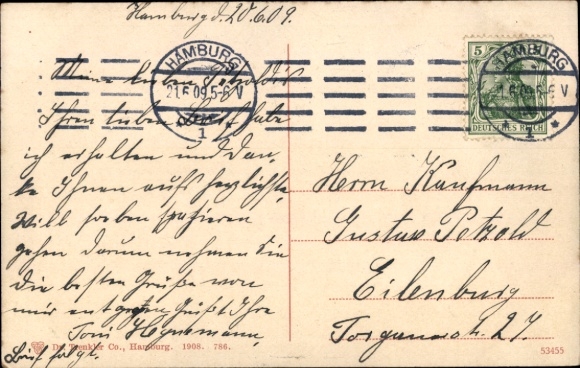 Hamburg d. 20.6.09.
HAMBURG
21.6.09.5-6 V
1
5
DEUTSCHES REICH
HAMBURG
21.6.09.5-6 V
1
Meine lieben Petzold's
Ihren lieben Brief habe
ich erhalten und dan-
ke Ihnen aufs herzlichste,
Will soeben spazieren
gehen darum nehmen Sie
die besten Grüße von
mir entgegen Grüßt Ihre
Toni
Brief folgt.
Herrn Kaufmann
Gustav Petzold
Eilenburg
Torgauerstr. 27.
Dr. Trenkler Co., Hamburg. 1908. 786.
53455